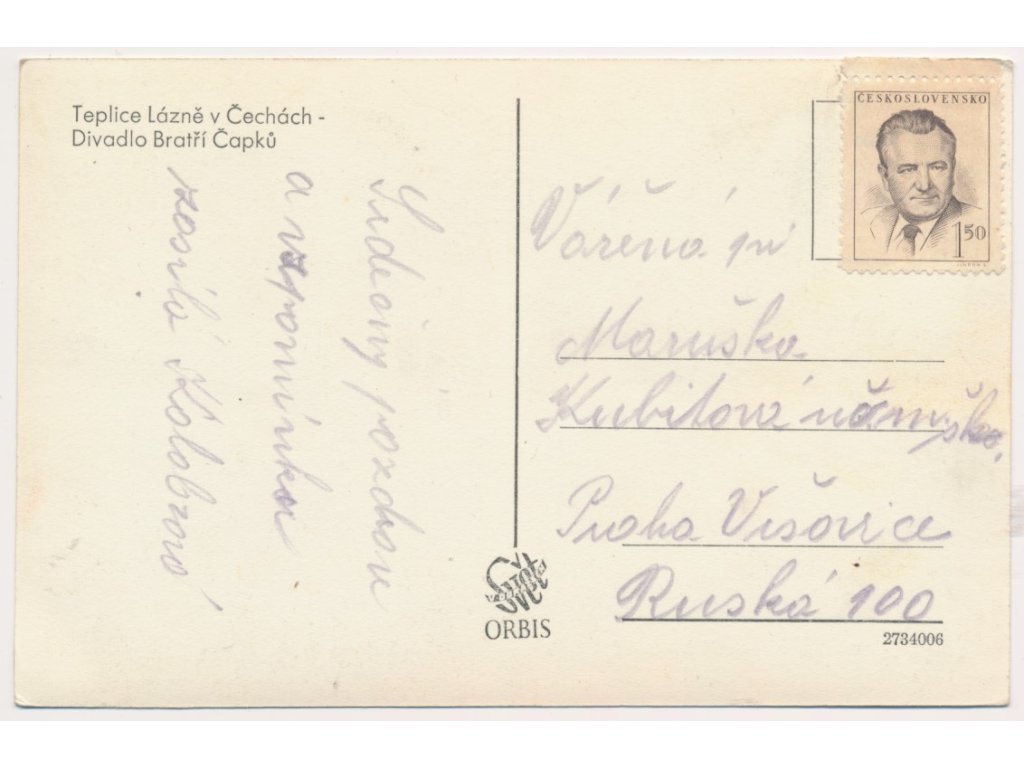 Teplice Lázně v Čechách -
Divadlo Bratří Čapků
Srdečný pozdrav
a vzpomínka
zasílá
ČESKOSLOVENSKO
1 50
Vážená pí
Maruška
Kubitová
Praha Vršovice
Ruská 100
Svět
ORBIS
2734006